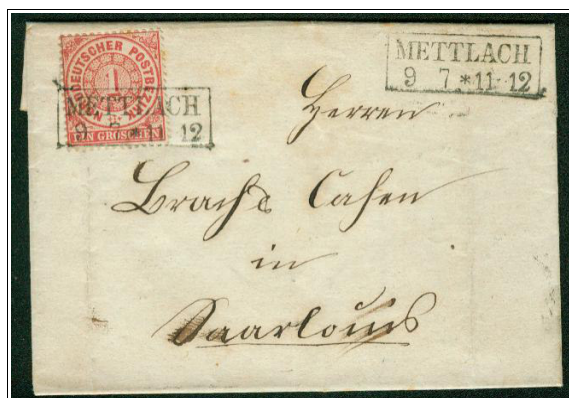 NORDDEUTSCHER POSTBEZIRK
1
EIN GROSCHEN
METTLACH
9 7 * 11-12
METTLACH
9 7 * 11-12
Herren
Brach & Cahen
in
Saarlouis